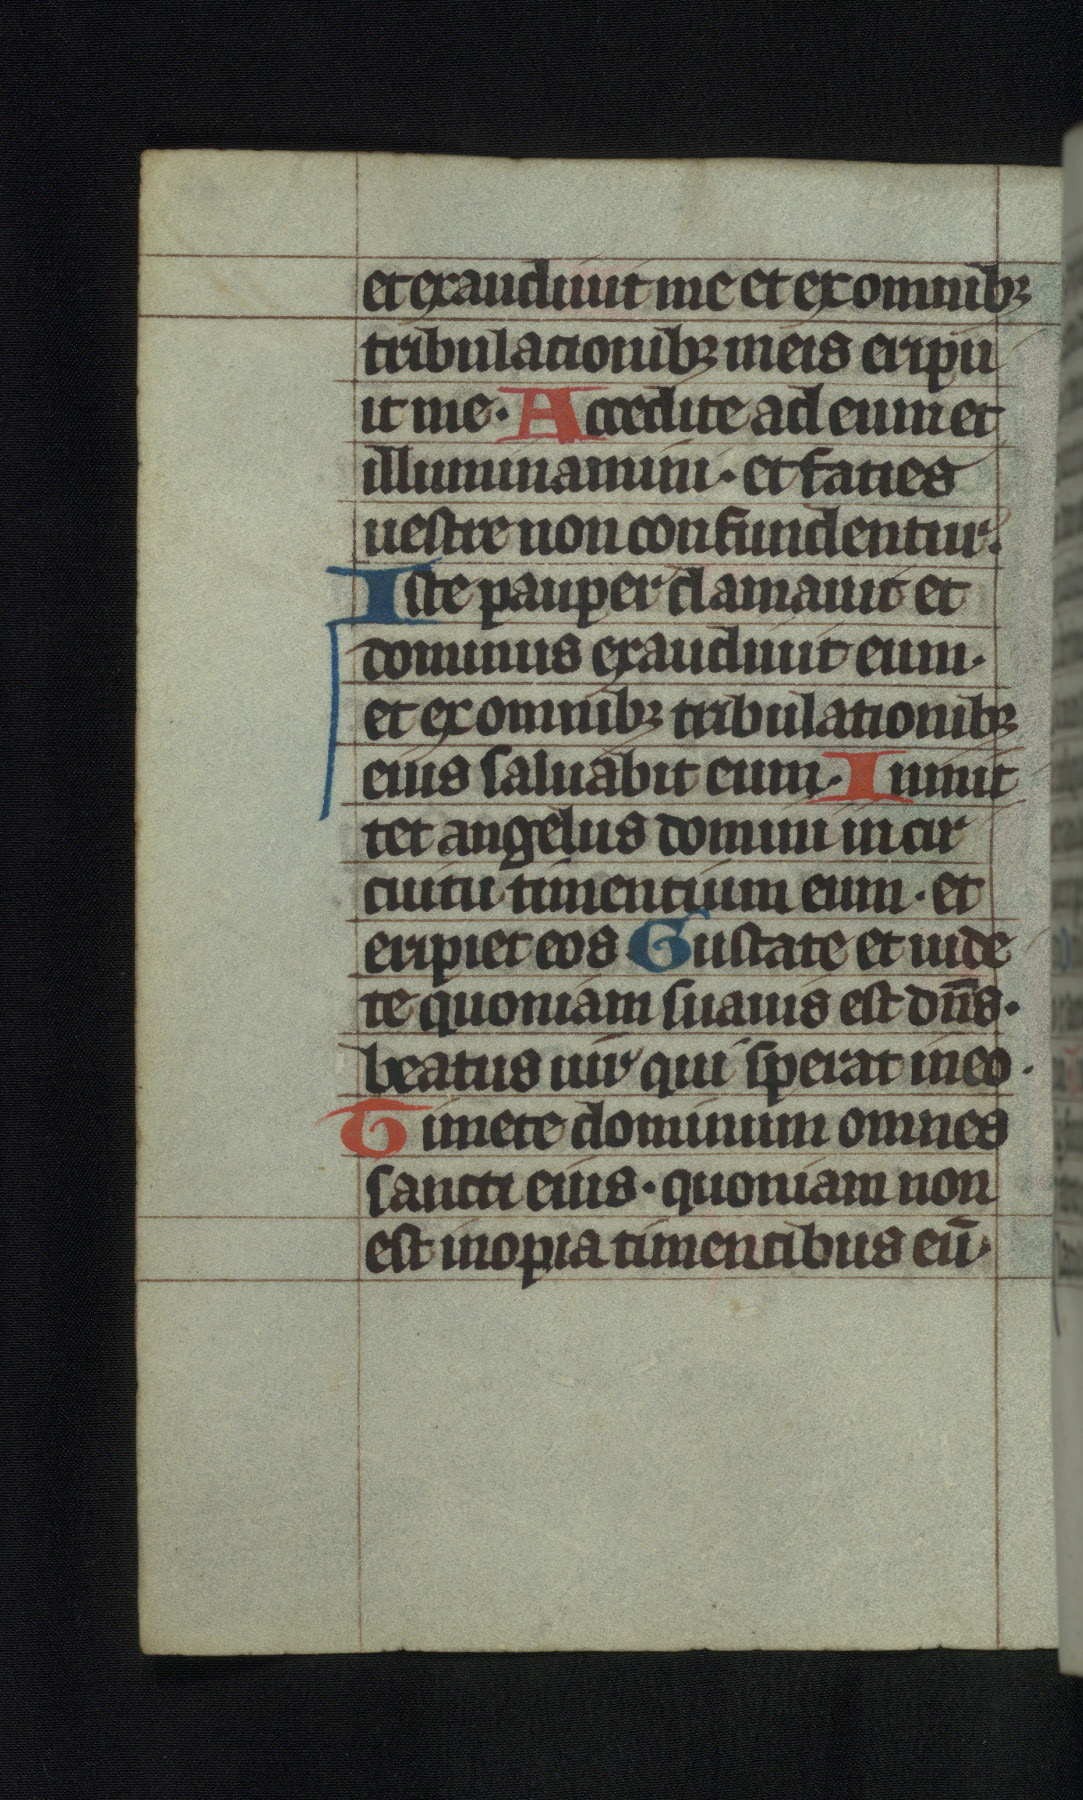 et exaudiuit me et ex omnibꝫ
tribulationibꝫ meis eripu
it me · Accedite ad eum et
illuminamini · et facies
uestre non confundentur.
Iste pauper clamauit et
dominus exaudiuit eum ·
et ex omnibꝫ tribulationibꝫ
eius saluabit eum · Inmit
tet angelus domini in cir
cuitu timentium eum · et
eripiet eos Gustate et uide
te quoniam suauis est dn̄s ·
beatus uir qui sperat in eo ·
Timete dominum omnes
sancti eius · quoniam non
est inopia timentibus eū ·